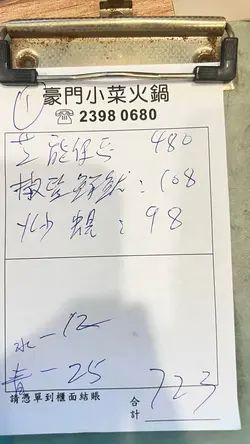 ①
豪門小菜火鍋
☎ 2398 0680
芝 480
椒鹽鮮魷：108
炒蜆：98
水－12
青－25
請憑單到櫃面結賬
合計 723